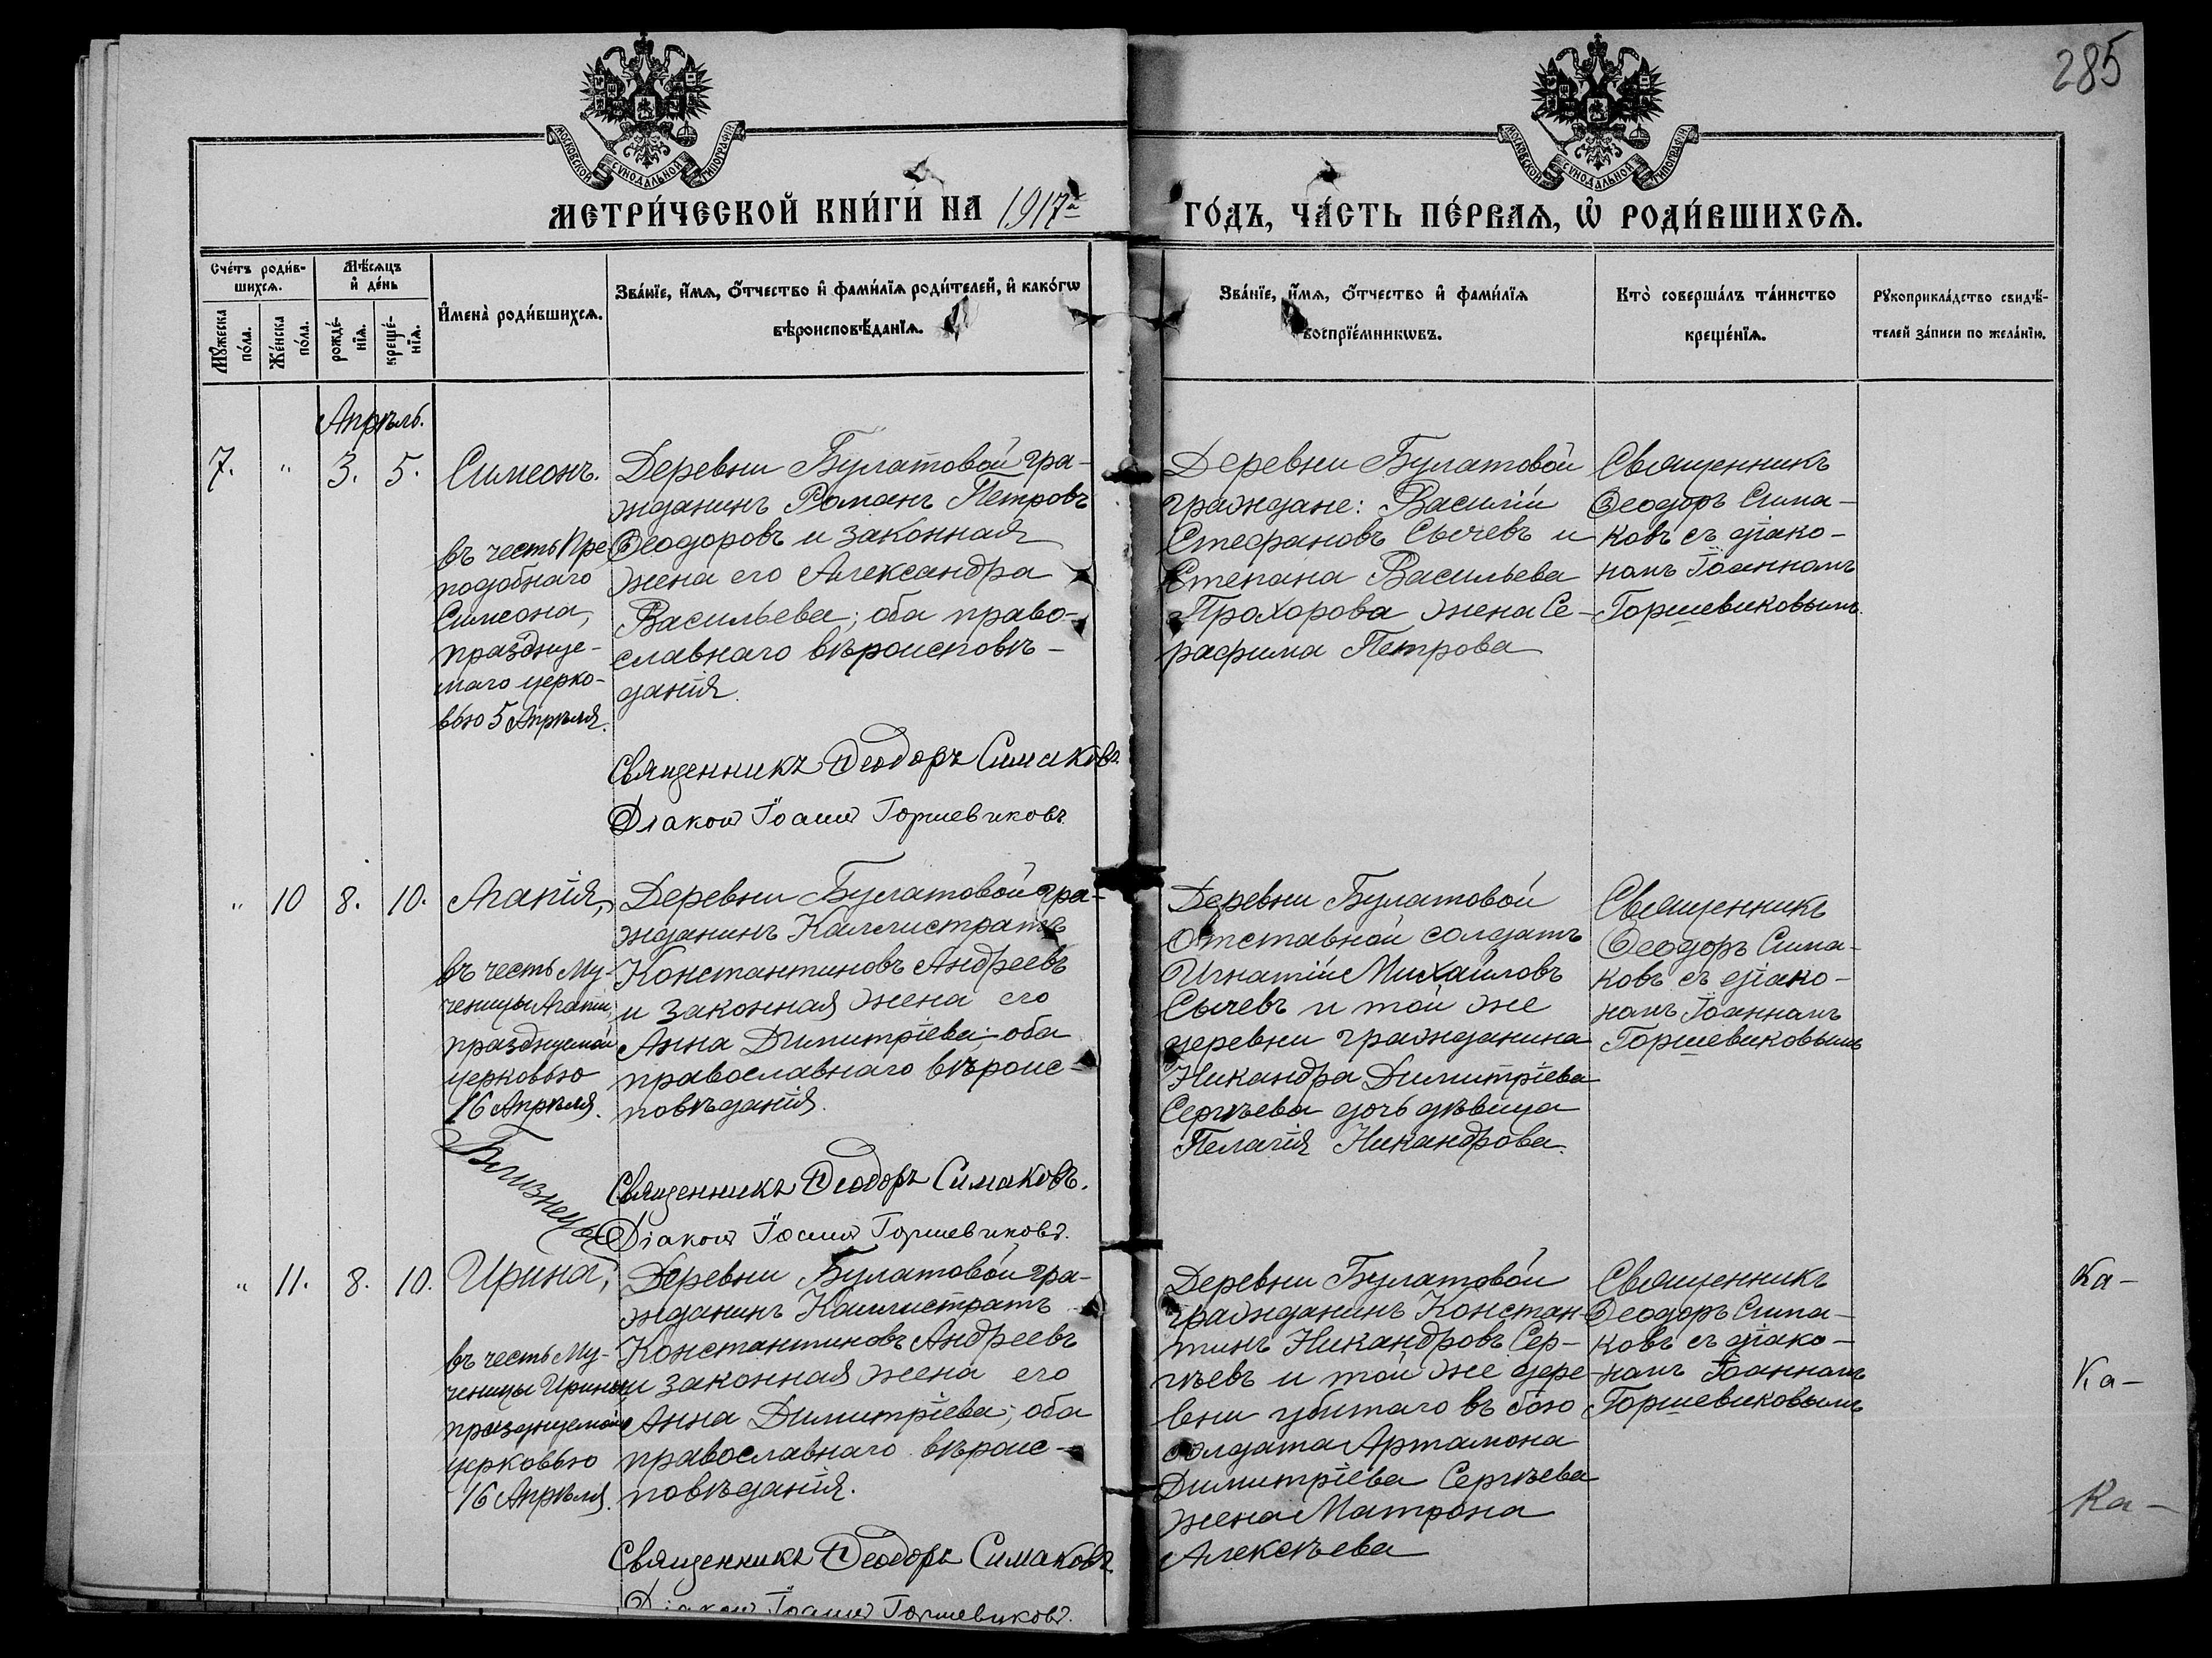 285
МОСКОВСКОЙ СѴНОДАЛЬНОЙ ТИПОГРАФІИ
МОСКОВСКОЙ СѴНОДАЛЬНОЙ ТИПОГРАФІИ
МЕТРИ́ЧЕСКОЙ КНИ́ГИ НА 1917й ГО́ДЪ, ЧА́СТЬ ПЕ́РВАѦ, Ѡ҆ РОДИ́ВШИХСѦ.
Сче́тъ роди́в-
шихсѧ.
Мꙋ́жеска
по́ла.
Же́нска
по́ла.
Мѣ́сѧцъ
и҆ де́нь
рожде́-
нїѧ.
креще́-
нїѧ.
И҆мена̀ роди́вшихсѧ.
Зва́нїе, и҆́мѧ, ѻ҆́тчество и҆ фами́лїѧ роди́телей, и҆ како́гѡ
вѣроисповѣ́данїѧ.
Зва́нїе, и҆́мѧ, ѻ҆́тчество и҆ фами́лїѧ
воспрїе́мникѡвъ.
Кто̀ соверша́лъ та́инство
креще́нїѧ.
Рꙋкоприкла́дство свидѣ́-
телей за́писи по жела́нїю.
Апрѣль.
7. " 3. 5.
Симеонъ.
въ честь Пре-
подобнаго
Симеона,
празднуе-
маго церко-
вью 5 Апрѣля.
Деревни Булатовой гра-
жданинъ Романъ Петровъ
Ѳеодоровъ и законная
жена его Александра
Васильева; оба право-
славнаго вѣроисповѣ-
данія.
Священникъ Ѳеодоръ Симаковъ.
Діаконъ Іоаннъ Горшевиковъ.
Деревни Булатовой
граждане: Василій
Стефановъ Сычевъ и
Степана Васильева
Прохорова жена Се-
рафима Петрова
Священникъ
Ѳеодоръ Сима-
ковъ съ діако-
номъ Іоанномъ
Горшевиковымъ.
" 10 8. 10.
Агапія,
въ честь Му-
ченицы Агапіи,
празднуемой
церковью
16 Апрѣля.
Близнецы
Деревни Булатовой гра-
жданинъ Каллистратъ
Константиновъ Андреевъ
и законная жена его
Анна Димитріева; оба
православнаго вѣроис-
повѣданія.
Священникъ Ѳеодоръ Симаковъ.
Діаконъ Іоаннъ Горшевиковъ.
Деревни Булатовой
отставной солдатъ
Игнатій Михайловъ
Сычевъ и той же
деревни гражданина
Никандра Димитріева
Сергѣева дочь дѣвица
Пелагія Никандрова.
Священникъ
Ѳеодоръ Сима-
ковъ съ діако-
номъ Іоанномъ
Горшевиковымъ
" 11. 8. 10.
Ирина,
въ честь Му-
ченицы Ирины
празднуемой
церковью
16 Апрѣля.
Деревни Булатовой гра-
жданинъ Каллистратъ
Константиновъ Андреевъ
и законная жена его
Анна Димитріева; оба
православнаго вѣроис-
повѣданія.
Священникъ Ѳеодоръ Симаковъ.
Діаконъ Іоаннъ Горшевиковъ.
Деревни Булатовой
гражданинъ Констан-
тинъ Никандровъ Сер-
гѣевъ и той же дере-
вни убитаго въ бою
солдата Артамона
Димитріева Сергѣева
жена Матрона
Алексѣева
Священникъ
Ѳеодоръ Сима-
ковъ съ діако-
номъ Іоанномъ
Горшевиковымъ
Ка-
Ка-
Ка-